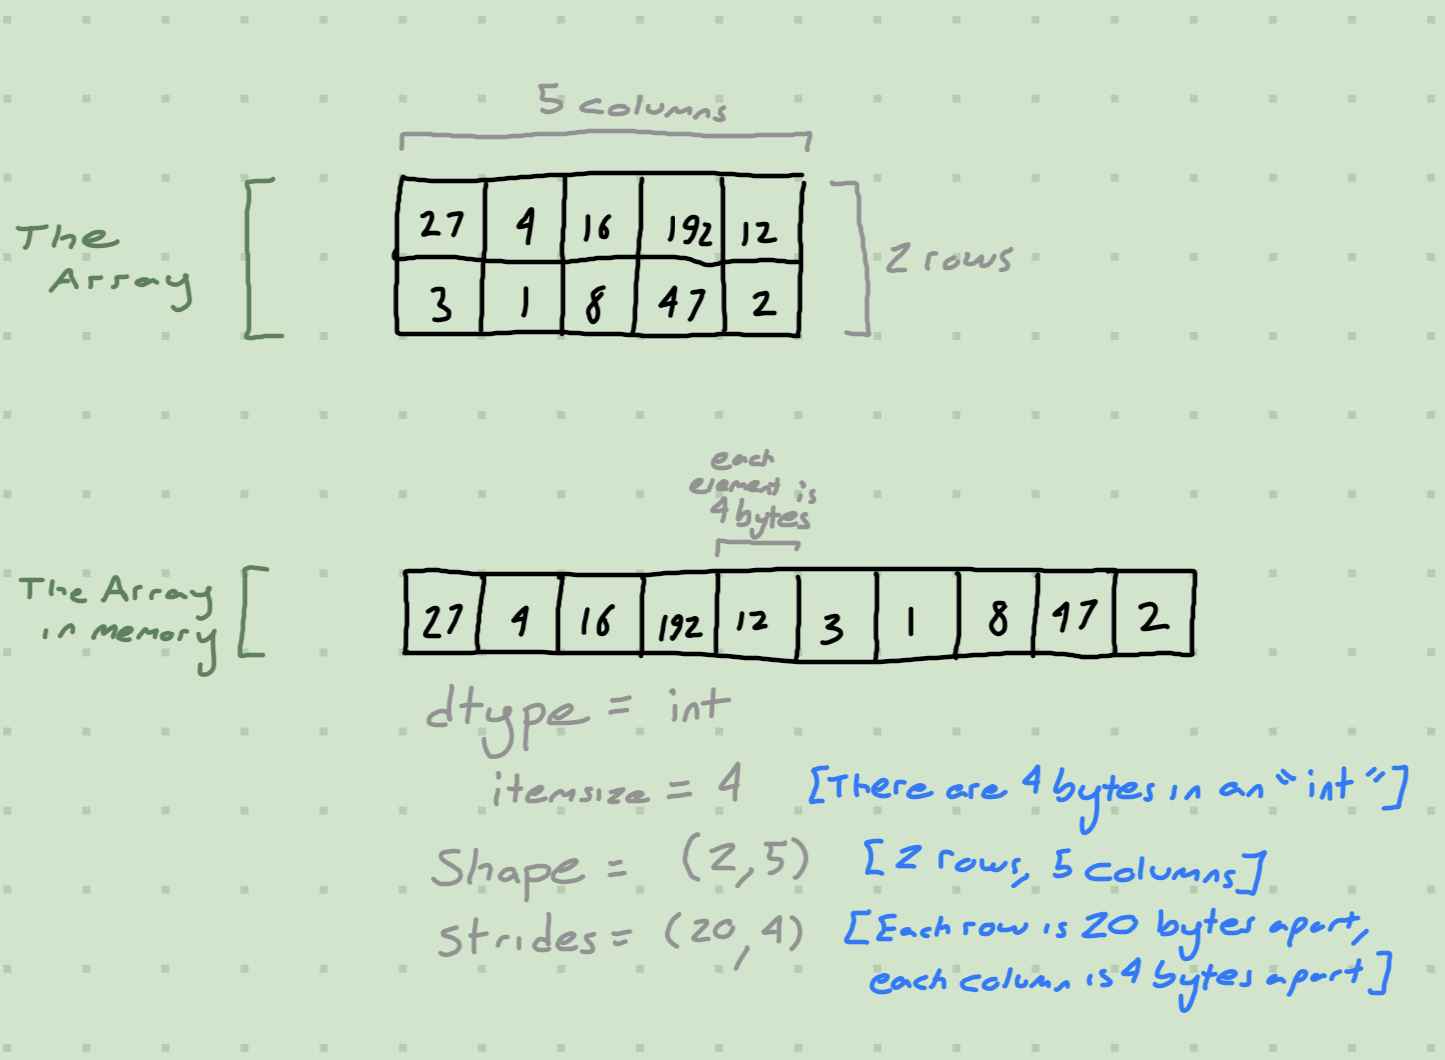 5 columns
The
Array
27 4 16 192 12
3 1 8 47 2
2 rows
each
element is
4 bytes
The Array
in memory
27 4 16 192 12 3 1 8 47 2
dtype = int
itemsize = 4 [There are 4 bytes in an "int"]
Shape = (2,5) [2 rows, 5 columns]
Strides = (20,4) [Each row is 20 bytes apart,
each column is 4 bytes apart]